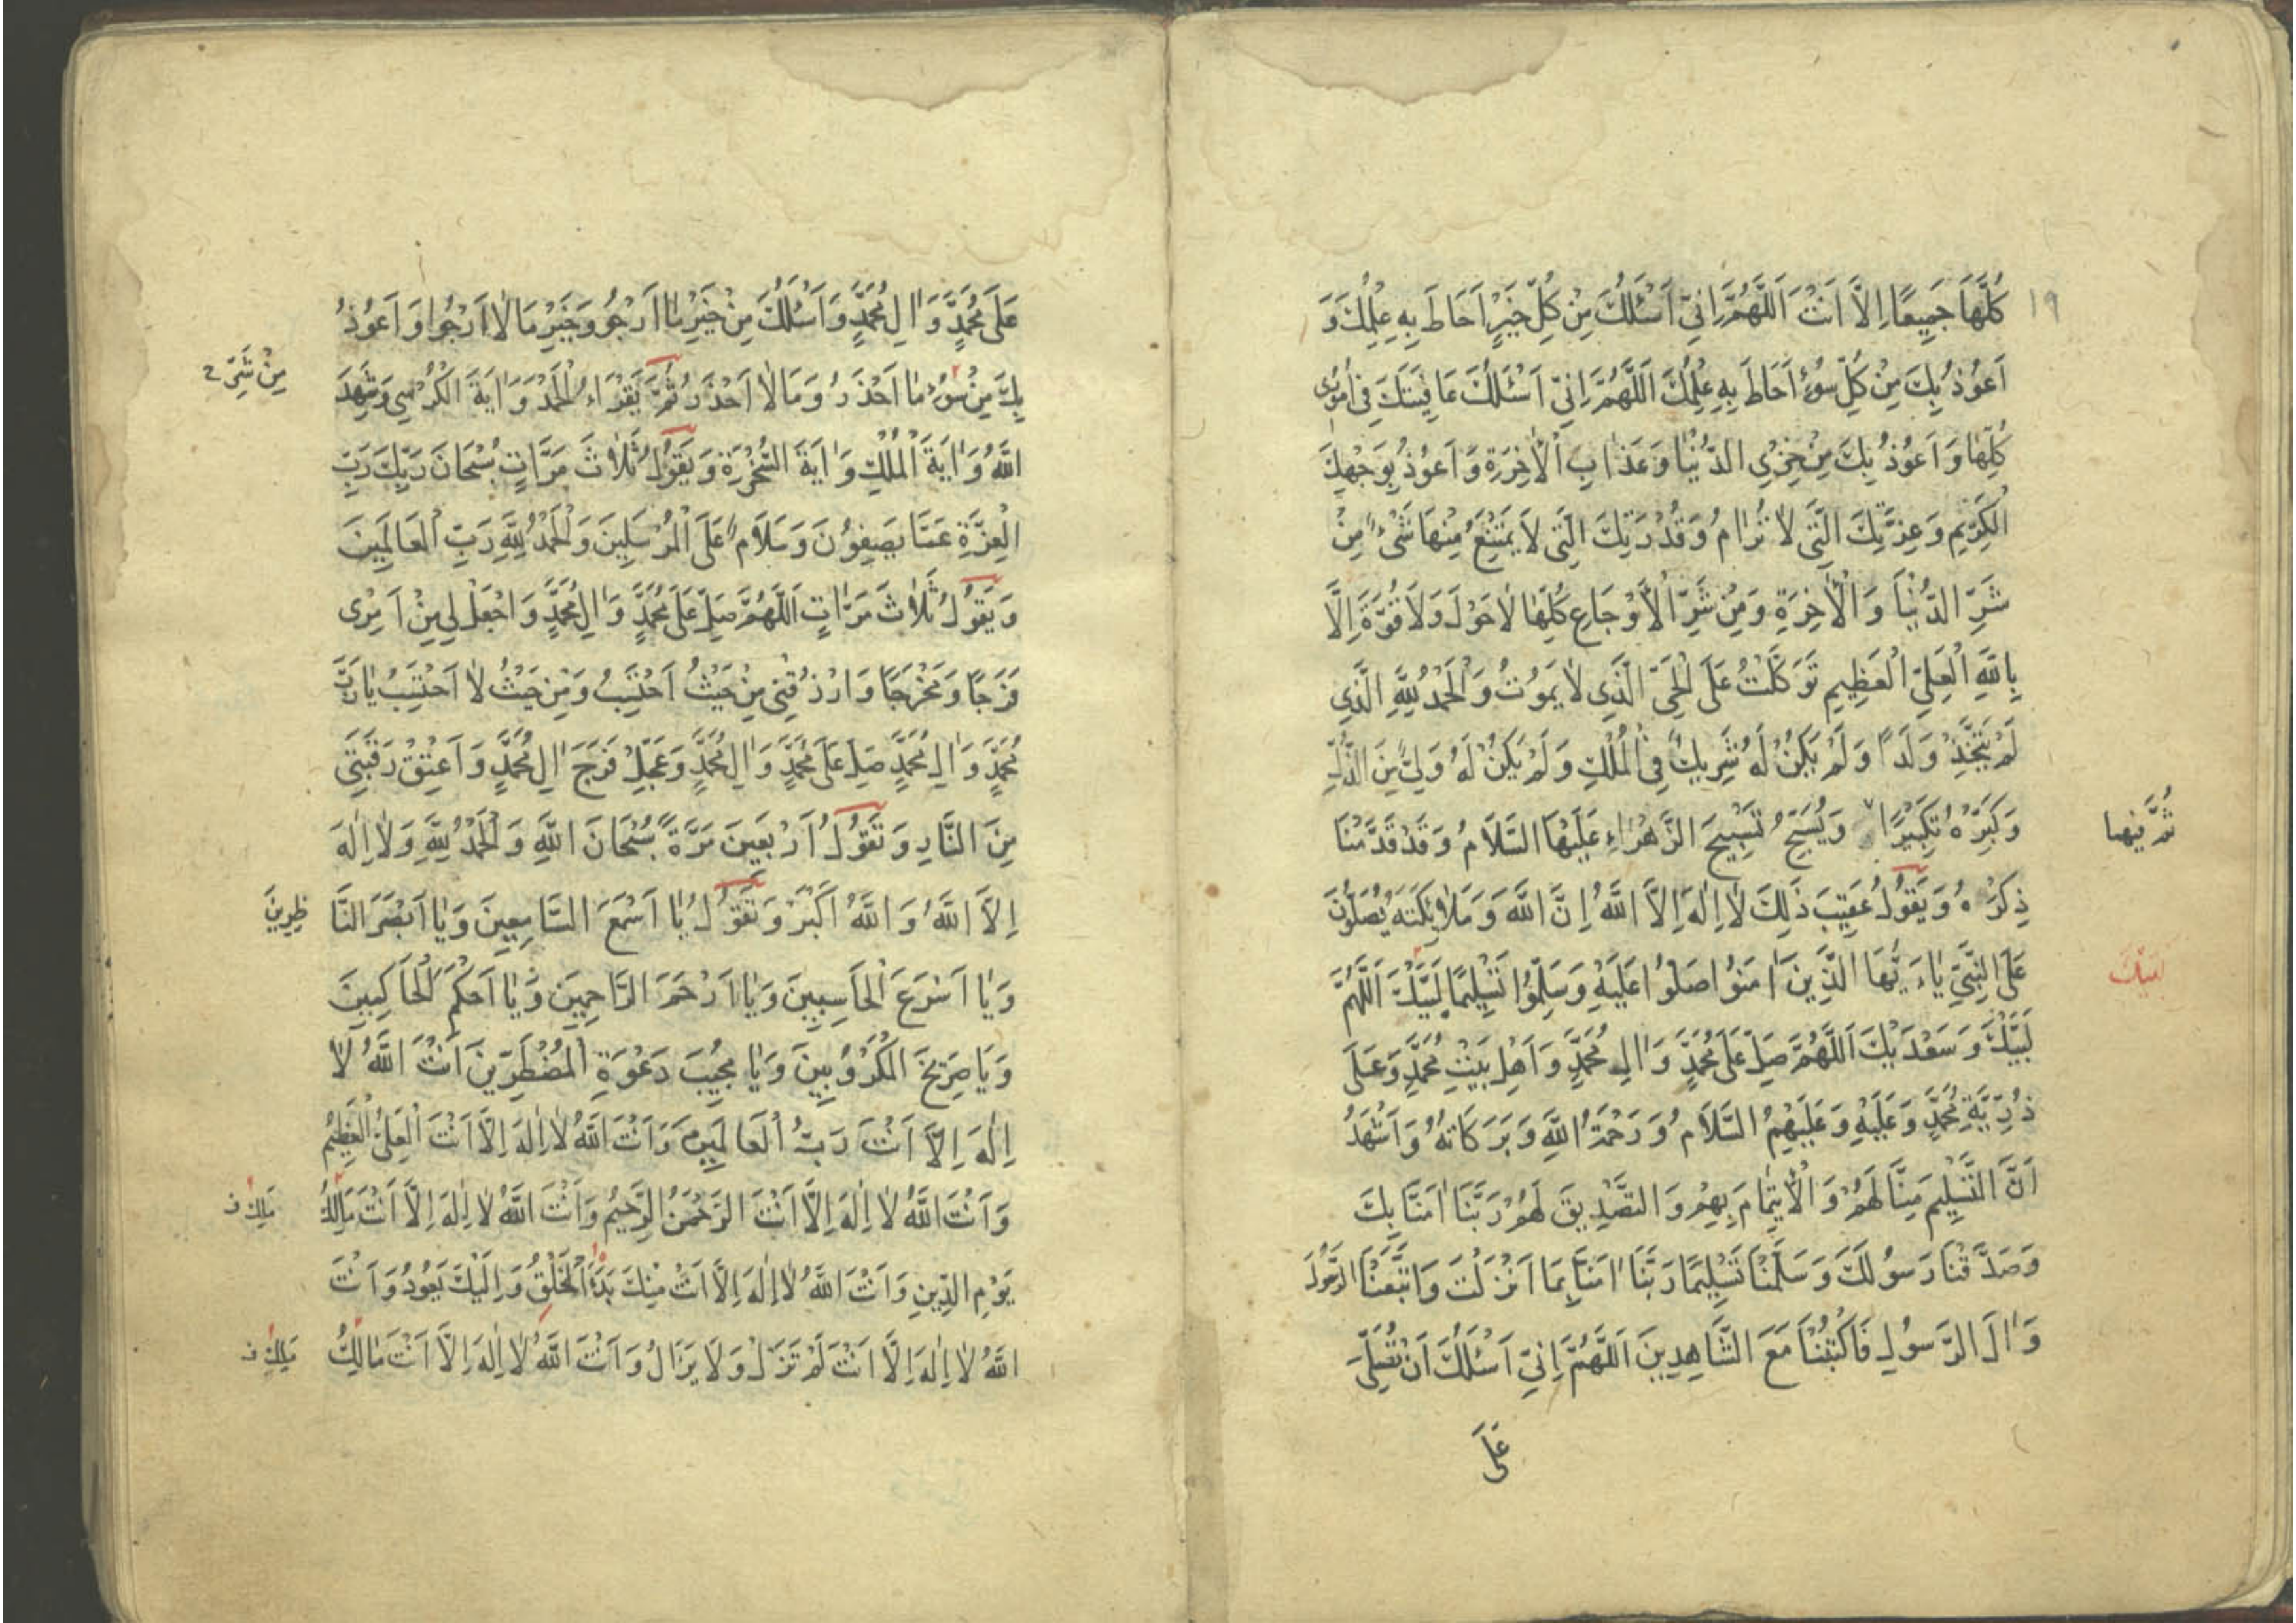 ١٩
كُلَّهَا جَمِيعًا اِلَّا اَنْتَ اَللّٰهُمَّ اِنِّي اَسْئَلُكَ مِنْ كُلِّ خَيْرٍ اَحَاطَ بِهِ عِلْمُكَ وَ
اَعُوذُ بِكَ مِنْ كُلِّ سُوءٍ اَحَاطَ بِهِ عِلْمُكَ اَللّٰهُمَّ اِنِّي اَسْئَلُكَ عَافِيَتَكَ فِي اُمُورِي
كُلِّهَا وَ اَعُوذُ بِكَ مِنْ خِزْيِ الدُّنْيَا وَعَذَابِ الْاٰخِرَةِ وَ اَعُوذُ بِوَجْهِكَ
الْكَرِيمِ وَ عِزَّتِكَ الَّتِي لَا تُرَامُ وَ قُدْرَتِكَ الَّتِي لَا يَمْتَنِعُ مِنْهَا شَيْءٌ مِنْ
شَرِّ الدُّنْيَا وَ الْاٰخِرَةِ وَ مِنْ شَرِّ الْاَوْجَاعِ كُلِّهَا لَا حَوْلَ وَ لَا قُوَّةَ اِلَّا
بِاللّٰهِ الْعَلِيِّ الْعَظِيمِ تَوَكَّلْتُ عَلَى الْحَيِّ الَّذِي لَا يَمُوتُ وَ الْحَمْدُ لِلّٰهِ الَّذِي
لَمْ يَتَّخِذْ وَلَدًا وَ لَمْ يَكُنْ لَهُ شَرِيكٌ فِي الْمُلْكِ وَ لَمْ يَكُنْ لَهُ وَلِيٌّ مِنَ الذُّلِّ
وَ كَبِّرْهُ تَكْبِيرًا وَ يُسَبِّحُ تَسْبِيحَ الزَّهْرَاءِ عَلَيْهَا السَّلَامُ وَ قَدْ قَدَّمْنَا
ذِكْرَهُ وَ يَقُولُ عَقِيبَ ذٰلِكَ لَا اِلٰهَ اِلَّا اللّٰهُ اِنَّ اللّٰهَ وَ مَلَائِكَتَهُ يُصَلُّونَ
عَلَى النَّبِيِّ يَا ءَيُّهَا الَّذِينَ اٰمَنُوا صَلُّوا عَلَيْهِ وَ سَلِّمُوا تَسْلِيمًا لَبَّيْكَ اَللّٰهُمَّ
لَبَّيْكَ
لَبَّيْكَ وَ سَعْدَيْكَ اَللّٰهُمَّ صَلِّ عَلَى مُحَمَّدٍ وَ اٰلِ مُحَمَّدٍ وَ اَهْلِ بَيْتِ مُحَمَّدٍ وَ عَلَى
ذُرِّيَّةِ مُحَمَّدٍ وَ عَلَيْهِ وَ عَلَيْهِمُ السَّلَامُ وَ رَحْمَةُ اللّٰهِ وَ بَرَكَاتُهُ وَ اَشْهَدُ
اَنَّ التَّسْلِيمَ مِنَّا لَهُمْ وَ الْاِيتِمَامَ بِهِمْ وَ التَّصْدِيقَ لَهُمْ رَبَّنَا اٰمَنَّا بِكَ
وَ صَدَّقْنَا رَسُولَكَ وَ سَلَّمْنَا تَسْلِيمًا رَبَّنَا اٰمَنَّا بِمَا اَنْزَلْتَ وَ اتَّبَعْنَا الرَّسُولَ
وَ اٰلَ الرَّسُولِ فَاكْتُبْنَا مَعَ الشَّاهِدِينَ اَللّٰهُمَّ اِنِّي اَسْئَلُكَ اَنْ تُصَلِّيَ
عَلَى
عَلَى مُحَمَّدٍ وَ اٰلِ مُحَمَّدٍ وَ اَسْئَلُكَ مِنْ خَيْرِ مَا اَرْجُو وَ خَيْرِ مَا لَا اَرْجُوا وَ اَعُوذُ
بِكَ مِنْ سُوءِ مَا اَحْذَرُ وَ مَا لَا اَحْذَرُ ثُمَّ يَقْرَاءُ الْحَمْدَ وَ اٰيَةَ الْكُرْسِي وَ شَهِدَ
مِنْ شَرِّ
اللّٰهُ وَ اٰيَةَ الْمُلْكِ وَ اٰيَةَ السُّخْرَةِ وَ يَقُولُ ثَلَاثَ مَرَّاتٍ سُبْحَانَ رَبِّكَ رَبِّ
الْعِزَّةِ عَمَّا يَصِفُونَ وَ سَلَامٌ عَلَى الْمُرْسَلِينَ وَ الْحَمْدُ لِلّٰهِ رَبِّ الْعَالَمِينَ
وَ يَقُولُ ثَلَاثَ مَرَّاتٍ اَللّٰهُمَّ صَلِّ عَلَى مُحَمَّدٍ وَ اٰلِ مُحَمَّدٍ وَ اجْعَلْ لِي مِنْ اَمْرِي
فَرَجًا وَ مَخْرَجًا وَ ارْزُقْنِي مِنْ حَيْثُ اَحْتَسِبُ وَ مِنْ حَيْثُ لَا اَحْتَسِبُ يَا رَبَّ
مُحَمَّدٍ وَ اٰلِ مُحَمَّدٍ صَلِّ عَلَى مُحَمَّدٍ وَ اٰلِ مُحَمَّدٍ وَ عَجِّلْ فَرَجَ اٰلِ مُحَمَّدٍ وَ اَعْتِقْ رَقَبَتِي
مِنَ النَّارِ وَ تَقُولُ اَرْبَعِينَ مَرَّةً سُبْحَانَ اللّٰهِ وَ الْحَمْدُ لِلّٰهِ وَ لَا اِلٰهَ
اِلَّا اللّٰهُ وَ اللّٰهُ اَكْبَرُ وَ تَقُولُ يَا اَسْمَعَ السَّامِعِينَ وَ يَا اَبْصَرَ النَّا
ظِرِينَ
وَ يَا اَسْرَعَ الْحَاسِبِينَ وَ يَا اَرْحَمَ الرَّاحِمِينَ وَ يَا اَحْكَمَ الْحَاكِمِينَ
وَ يَا صَرِيخَ الْمَكْرُوبِينَ وَ يَا مُجِيبَ دَعْوَةِ الْمُضْطَرِّينَ اَنْتَ اللّٰهُ لَا
اِلٰهَ اِلَّا اَنْتَ رَبُّ الْعَالَمِينَ وَ اَنْتَ اللّٰهُ لَا اِلٰهَ اِلَّا اَنْتَ الْعَلِيُّ الْعَظِيمُ
وَ اَنْتَ اللّٰهُ لَا اِلٰهَ اِلَّا اَنْتَ الرَّحْمٰنُ الرَّحِيمُ وَ اَنْتَ اللّٰهُ لَا اِلٰهَ اِلَّا اَنْتَ مَالِكُ
مَلِكِ ف
يَوْمِ الدِّينِ وَ اَنْتَ اللّٰهُ لَا اِلٰهَ اِلَّا اَنْتَ مِنْكَ بَدَءُ الْخَلْقِ وَ اِلَيْكَ يَعُودُ وَ اَنْتَ
اللّٰهُ لَا اِلٰهَ اِلَّا اَنْتَ لَمْ تَزَلْ وَ لَا يَزَالُ وَ اَنْتَ اللّٰهُ لَا اِلٰهَ اِلَّا اَنْتَ مَالِكُ
مَلِكِ ف